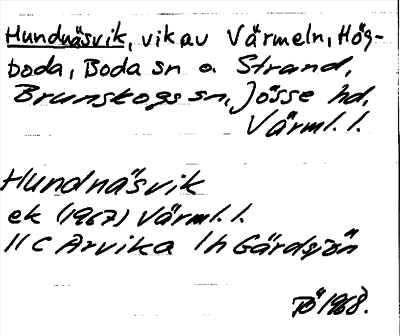 Hundnäsvik, vik av Värmeln, Hög-
boda, Boda sn o. Strand,
Brunskogs sn, Jösse hd,
Värml. l.
Hundnäsvik
ek (1967) Värml. l.
11 C Arvika 1 h Gärdsjön
1968.